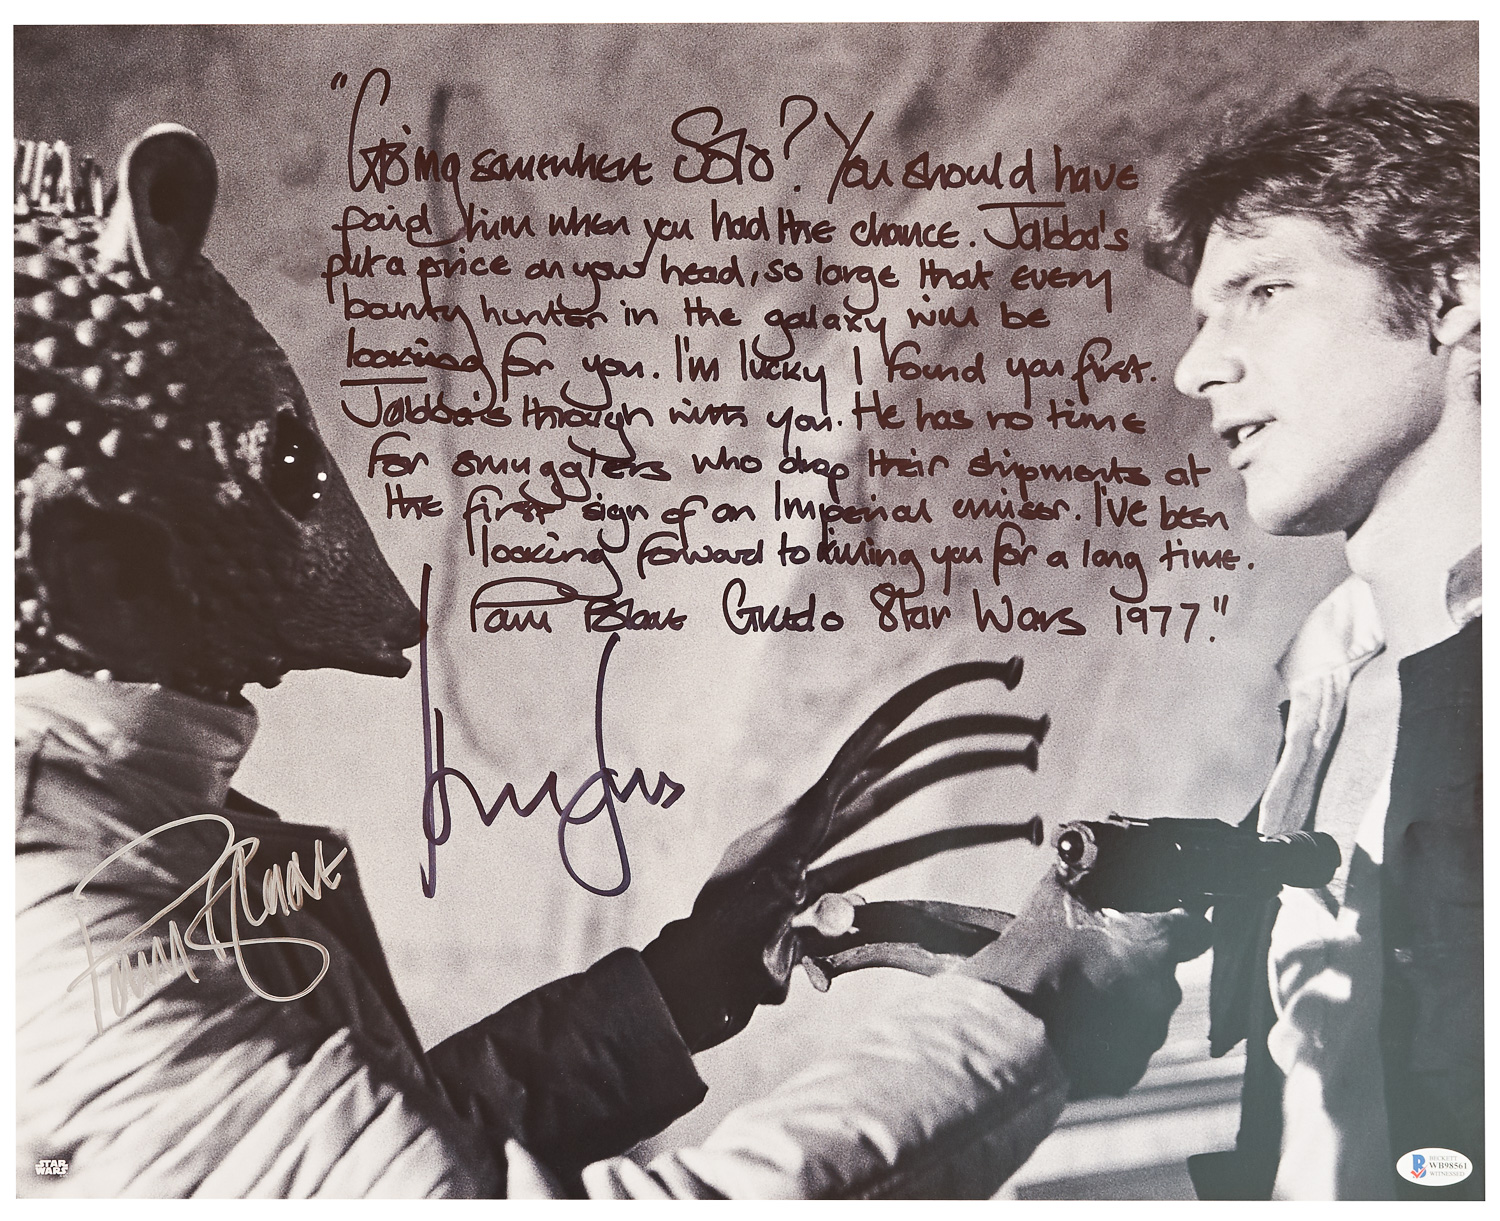 "Going somewhere Solo? You should have
paid him when you had the chance. Jabba's
put a price on your head, so large that every
bounty hunter in the galaxy will be
looking for you. I'm lucky I found you first.
Jabba's through with you. He has no time
for smugglers who drop their shipments at
the first sign of an Imperial cruiser. I've been
looking forward to killing you for a long time.
Pam Blake Greedo Star Wars 1977."
STAR WARS
BECKETT
WB98561
WITNESSED